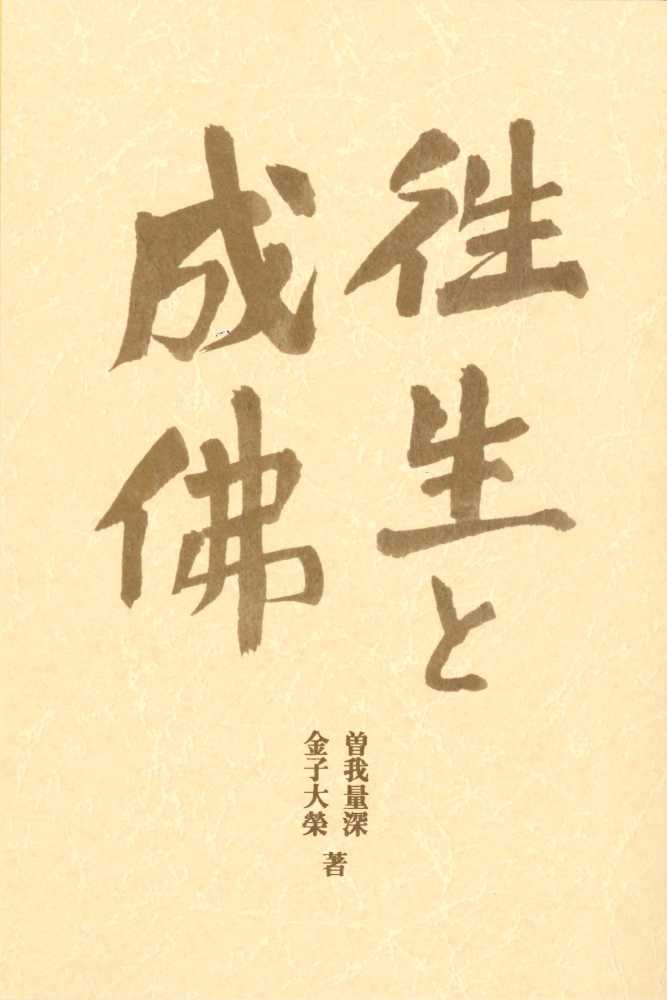 往生と
成佛
曽我量深
金子大榮
著